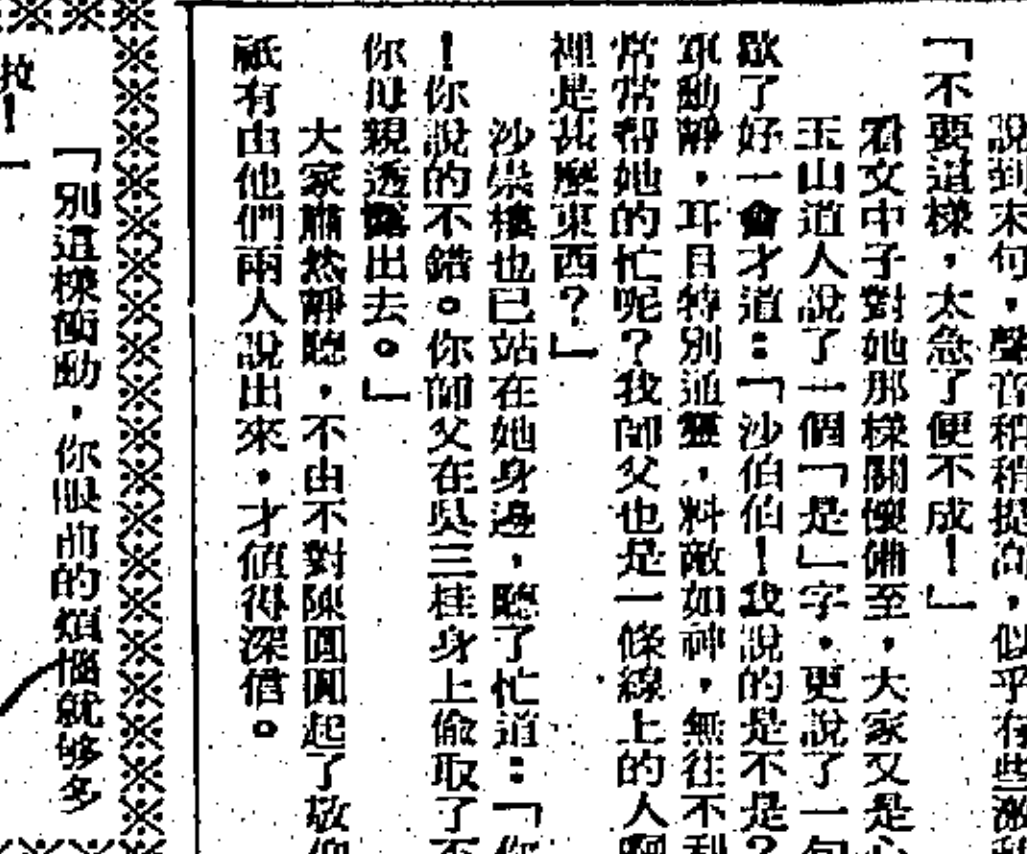 說到末句，聲音稍稍提高，似乎有些激
「不要這樣，太急了便不成！」
看文中子對她那樣關懷備至，大家又是心
玉山道人說了一個「是」字，更說了一句
歇了好一會才道：「沙伯伯！我說的是不是？
動靜，耳目特別通靈，料敵如神，無往不利
常常帮她的忙呢？我師父也是一條線上的人啊
裡是甚麼東西？」
沙崇樓也已站在她身邊，聽了忙道：「你
！你說的不錯。你師父在吳三桂身上偷取了不
你母親透露出去。」
大家肅然靜聽，不由不對陳圓圓起了敬仰
祇有由他們兩人說出來，才值得深信。
「別這樣衝動，你眼前的煩惱就够多